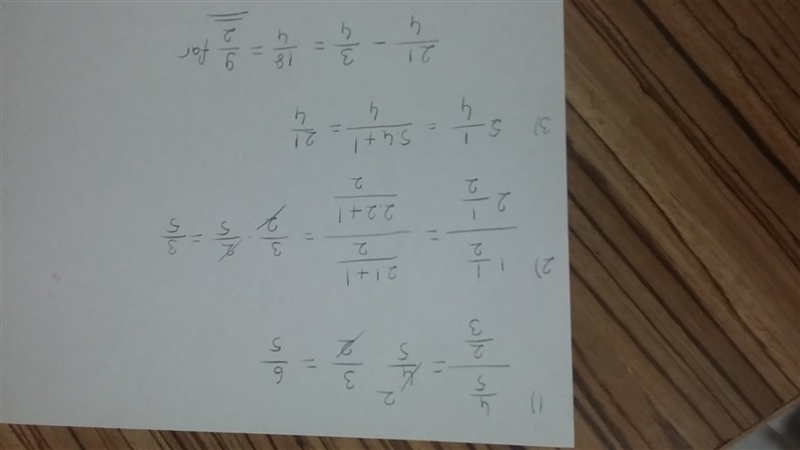 1) (4/5)/(2/3) = 4/5 2 · 3/2 = 6/5
2) (1 1/2)/(2 1/2) = ((2 1+1)/2)/((2.2+1)/2) = 3/2 · 2/5 = 3/5
3) 5 1/4 = (5 4+1)/4 = 21/4
21/4 - 3/4 = 18/4 = 9/2 far